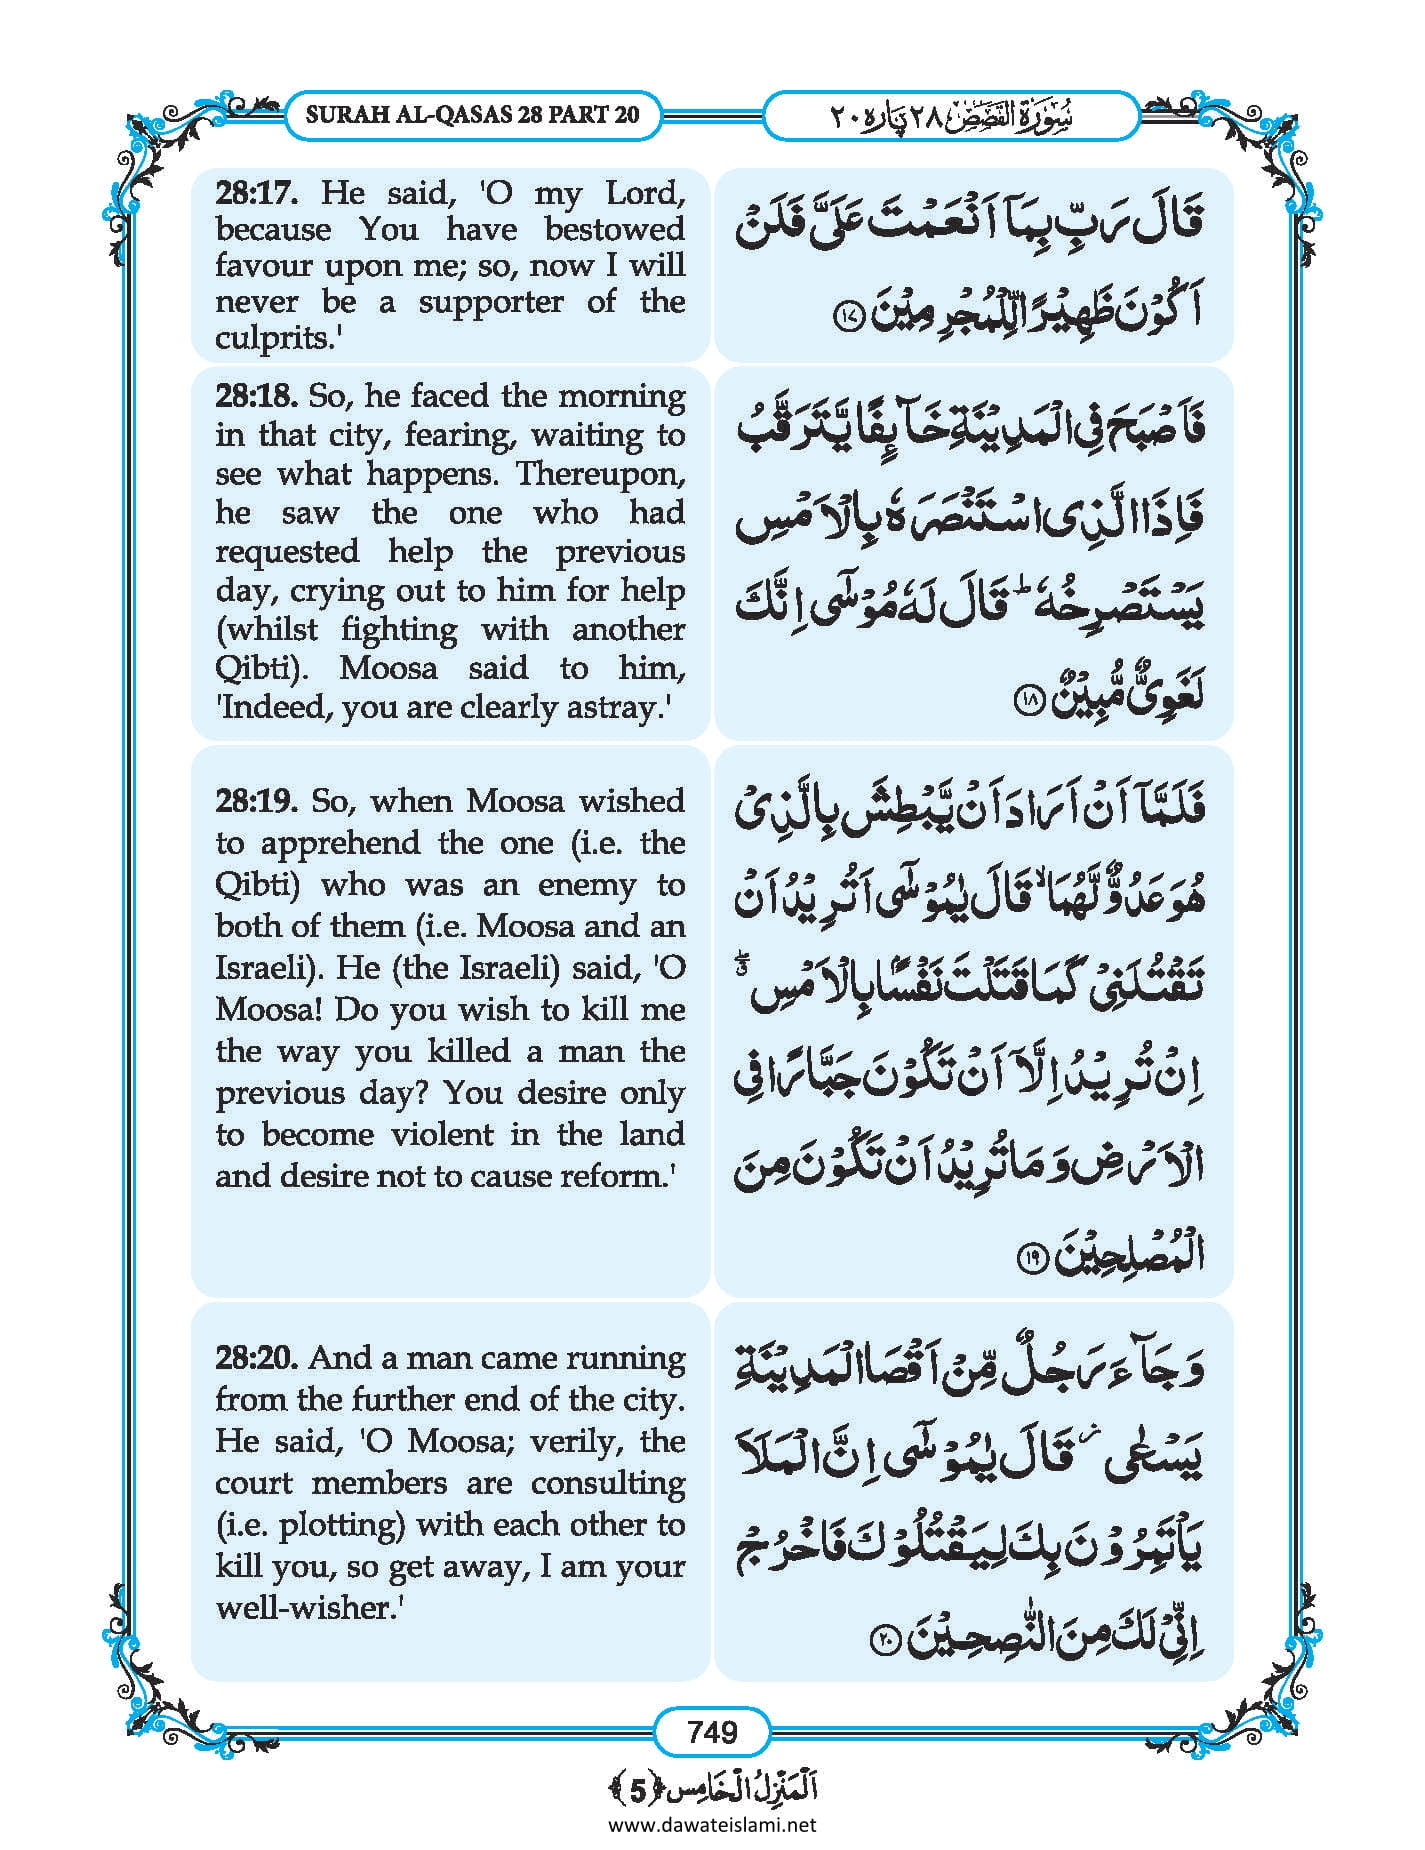 SURAH AL-QASAS 28 PART 20
سُوْرَةُ الْقَصَصِ ٢٨ پارہ ٢٠
28:17. He said, 'O my Lord,
because You have bestowed
favour upon me; so, now I will
never be a supporter of the
culprits.'
قَالَ رَبِّ بِمَاۤ اَنْعَمْتَ عَلَیَّ فَلَنْ
اَكُوْنَ ظَهِیْرًا لِّلْمُجْرِمِیْنَ ۝۱۷
28:18. So, he faced the morning
in that city, fearing, waiting to
see what happens. Thereupon,
he saw the one who had
requested help the previous
day, crying out to him for help
(whilst fighting with another
Qibti). Moosa said to him,
'Indeed, you are clearly astray.'
فَاَصْبَحَ فِی الْمَدِیْنَةِ خَآىِٕفًا یَّتَرَقَّبُ
فَاِذَا الَّذِی اسْتَنْصَرَهٗ بِالْاَمْسِ
یَسْتَصْرِخُهٗؕ قَالَ لَهٗ مُوْسٰۤى اِنَّكَ
لَغَوِیٌّ مُّبِیْنٌ ۝۱۸
28:19. So, when Moosa wished
to apprehend the one (i.e. the
Qibti) who was an enemy to
both of them (i.e. Moosa and an
Israeli). He (the Israeli) said, 'O
Moosa! Do you wish to kill me
the way you killed a man the
previous day? You desire only
to become violent in the land
and desire not to cause reform.'
فَلَمَّاۤ اَنْ اَرَادَ اَنْ یَّبْطِشَ بِالَّذِیْ
هُوَ عَدُوٌّ لَّهُمَاۙ قَالَ یٰمُوْسٰۤى اَتُرِیْدُ اَنْ
تَقْتُلَنِیْ كَمَا قَتَلْتَ نَفْسًۢا بِالْاَمْسِ ۗۖ
اِنْ تُرِیْدُ اِلَّاۤ اَنْ تَكُوْنَ جَبَّارًا فِی
الْاَرْضِ وَ مَا تُرِیْدُ اَنْ تَكُوْنَ مِنَ
الْمُصْلِحِیْنَ ۝۱۹
28:20. And a man came running
from the further end of the city.
He said, 'O Moosa; verily, the
court members are consulting
(i.e. plotting) with each other to
kill you, so get away, I am your
well-wisher.'
وَ جَآءَ رَجُلٌ مِّنْ اَقْصَا الْمَدِیْنَةِ
یَسْعٰى٘ قَالَ یٰمُوْسٰۤى اِنَّ الْمَلَاَ
یَاْتَمِرُوْنَ بِكَ لِیَقْتُلُوْكَ فَاخْرُجْ
اِنِّیْ لَكَ مِنَ النّٰصِحِیْنَ ۝۲۰
749
اَلْمَنْزِلُ الْخَامِس ﴿5﴾
www.dawateislami.net